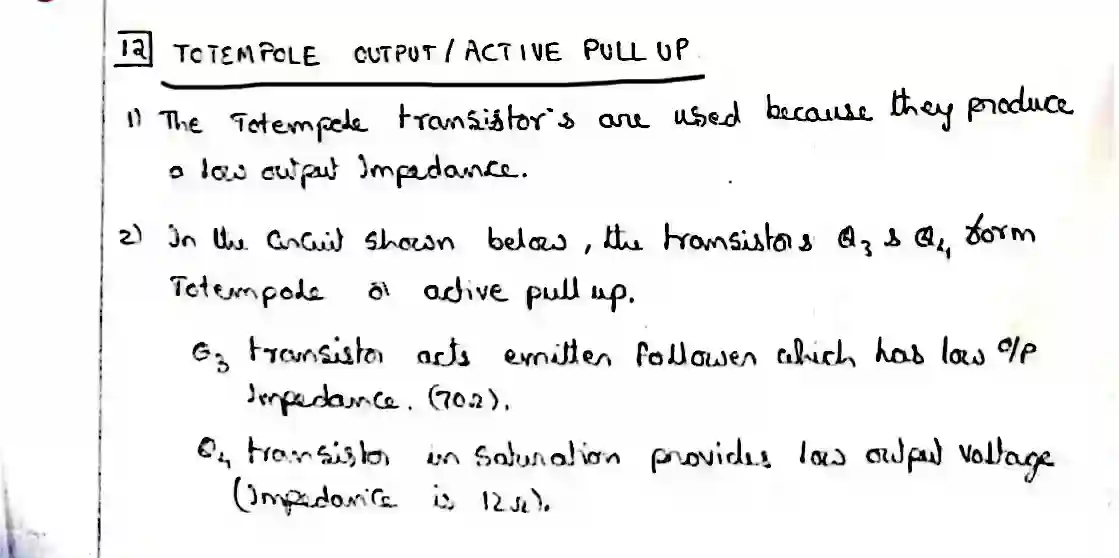 12 TOTEMPOLE OUTPUT / ACTIVE PULL UP
1) The Totempole transistor's are used because they produce
a low output Impedance.
2) In the Circuit shown below, the transistors Q3 & Q4 form
Totempole or active pull up.
Q3 transistor acts emitter follower which has low O/P
Impedance. (70Ω).
Q4 transistor in saturation provides low output voltage
(Impedance is 12Ω).